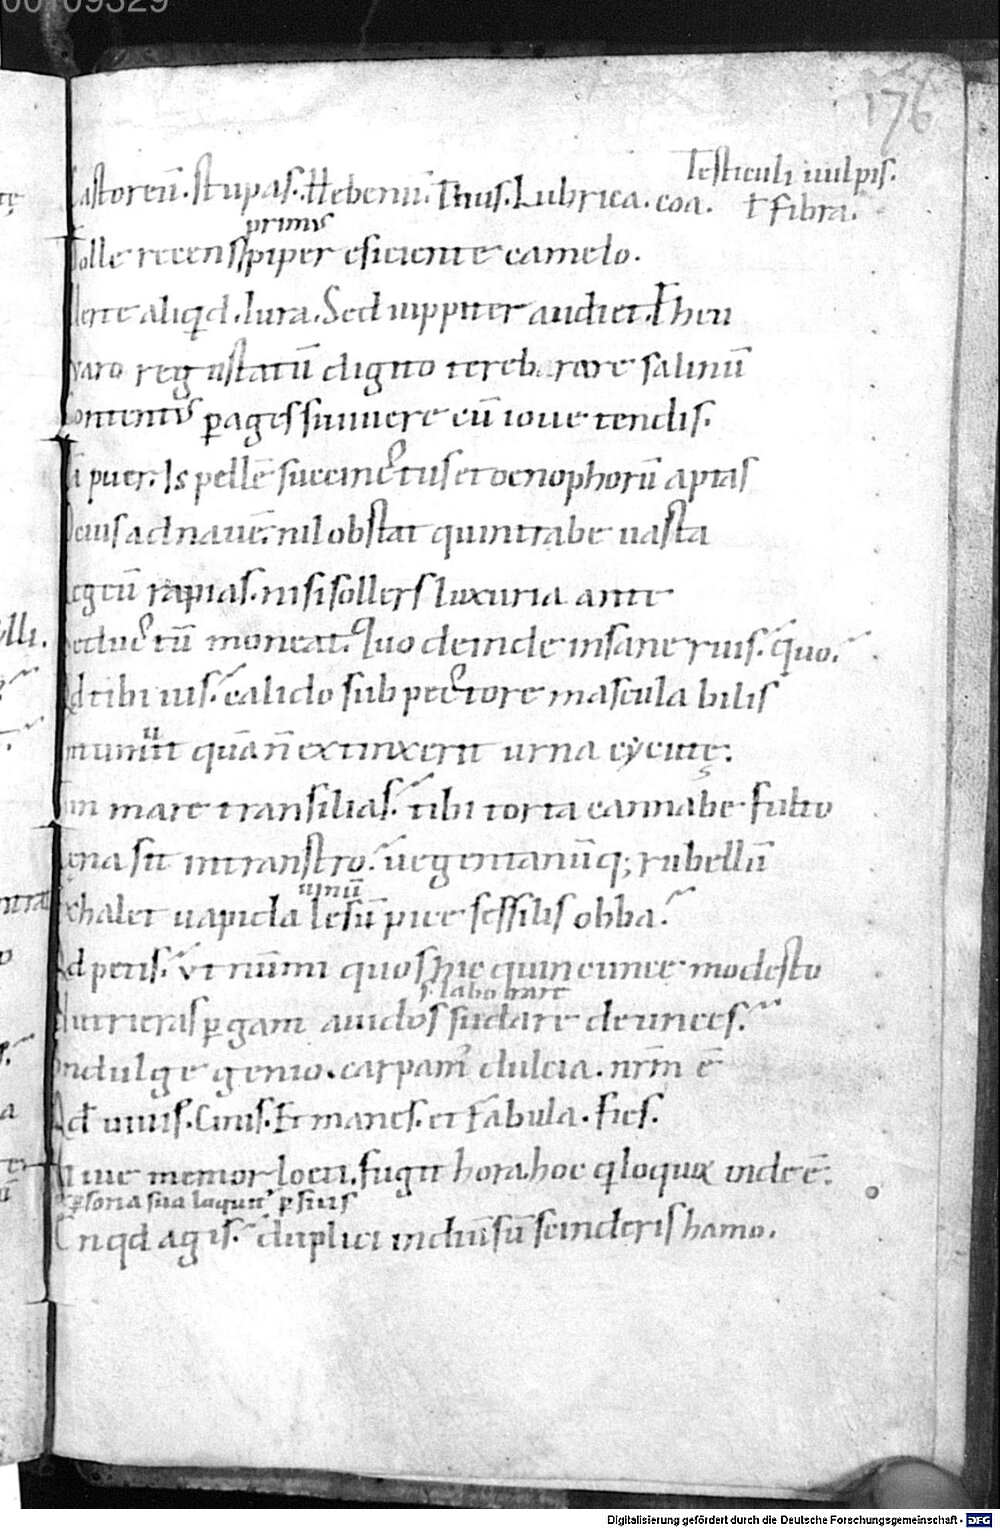 00109329
176
Testiculi uulpis.
Castoreū. stupas. Hebenū. Thus. Lubrica. coa. ł fibra.
primus
Tolle recens piper esiciente camelo.
Verte aliqͥd. Iura. Sed iuppiter audiet. Eheu
Varo regustatū digito terebrare salinū
Contentus ꝑages si uiuere cū ioue tendis.
Iā pueris pellē succinctus et oenophorū aptas
Ocius ad nauē. nil obstat quin trabe uasta
Aegeū rapias. nisi sollers luxuria ante
Seductū moneat. Quo deinde insane ruis. quo.
Qͥd tibi uis. calido sub pectore mascula bilis
Intumuit quā n̄ extinxerit urna cycutę.
Tun mare transilias. tibi torta cannabe fulto
Cena sit in transtro. uegentanūq; rubellū
uinū
Exhalet uapida lesū pice sessilis obba.
Qͥd petis. Vt nūmi quos hic quincunce modesto
.s. laborare
Nutrieras ꝑgant auidos sudare deunces.
Indulge genio. carpam᷒ dulcia. nr̄m ē
Qđ uiuis. Cinis. Et manes. et fabula. fies.
Viue memor loeti. fugit hora. hoc qͦ loquor inde ē.
ꝑsona sua loquit᷒ ꝑsius
En qͥd agis. duplici indiuisū scinderis hamo.
Digitalisierung gefördert durch die Deutsche Forschungsgemeinschaft - DFG